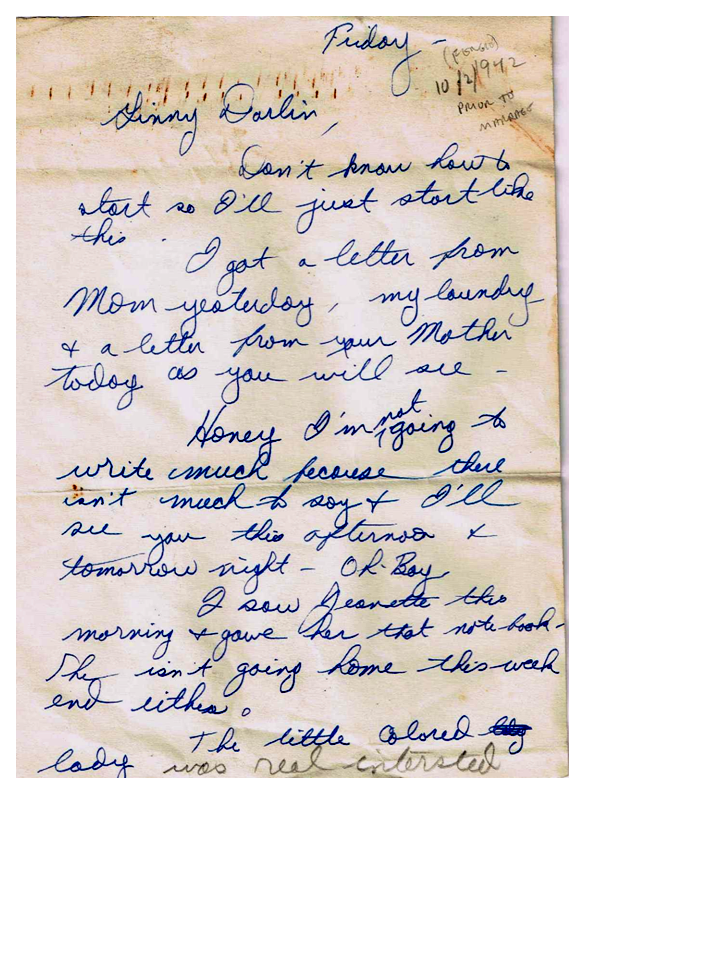 Friday -
10/2/1942
PRIOR TO
MARRIAGE
Ginny Darlin,
Don't know how to
start so I'll just start like
this.
I got a letter from
Mom yesterday, my laundry
& a letter from your Mother
today as you will see -
Honey I'm not going to
write much because there
isn't much to say & I'll
see you this afternoon &
tomorrow night - Oh-Boy
I saw Jeanette this
morning & gave her that note-book-
She isn't going home this week
end either.
The little colored
lady was real intersted